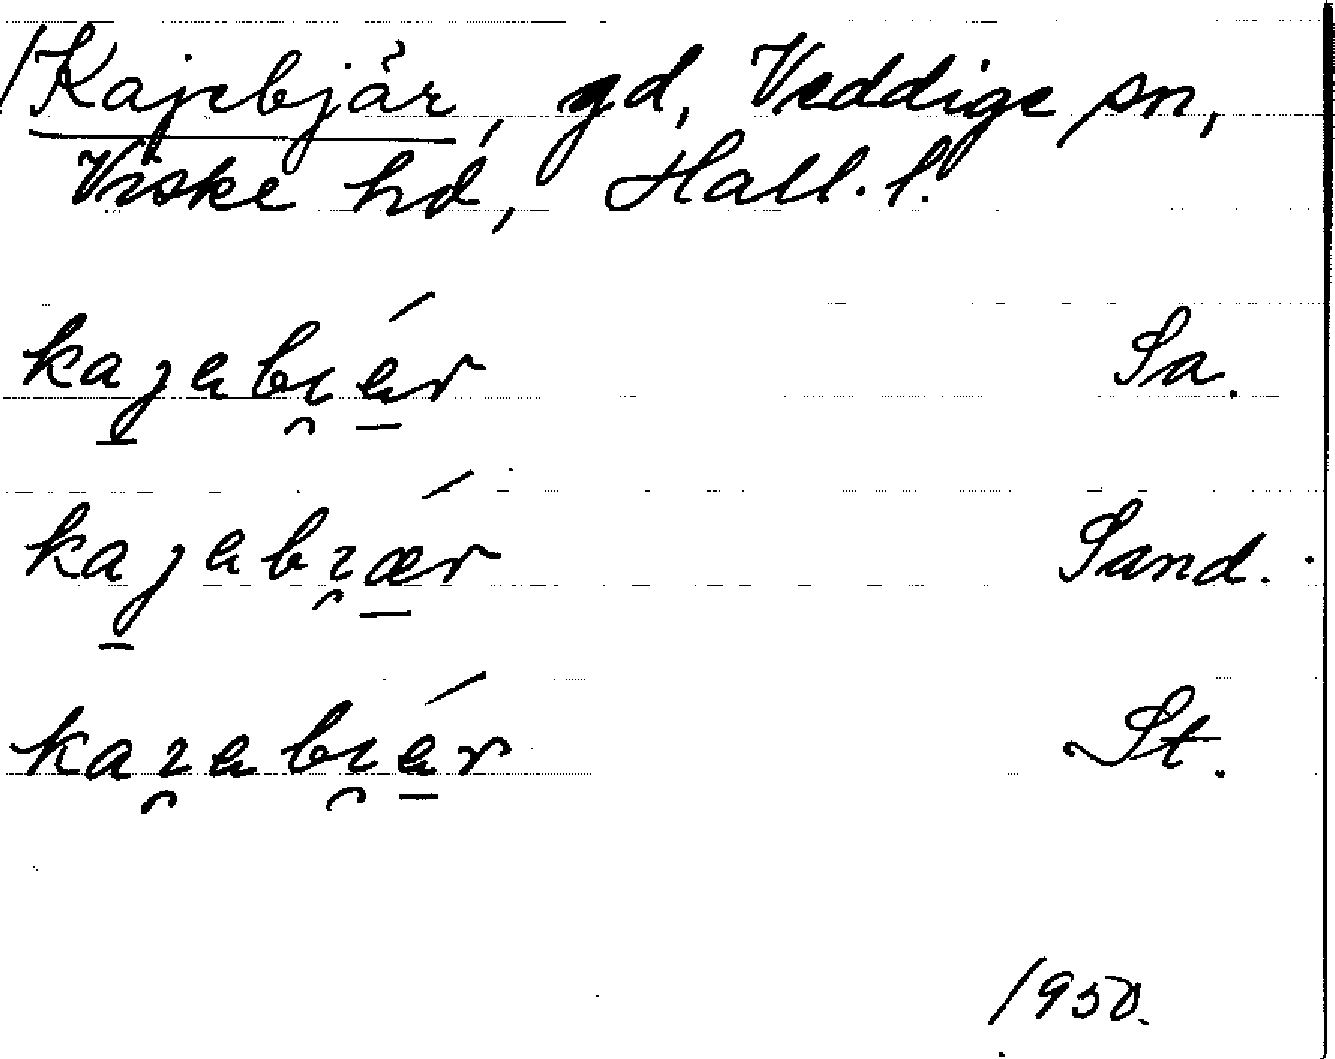 /Kajebjär, gd, Veddige sn,
Viske hd, Hall. l.
kajabı̯ér Sa.
kajabı̯ǽr Sand.
kaı̯abı̯ér St.
1950.